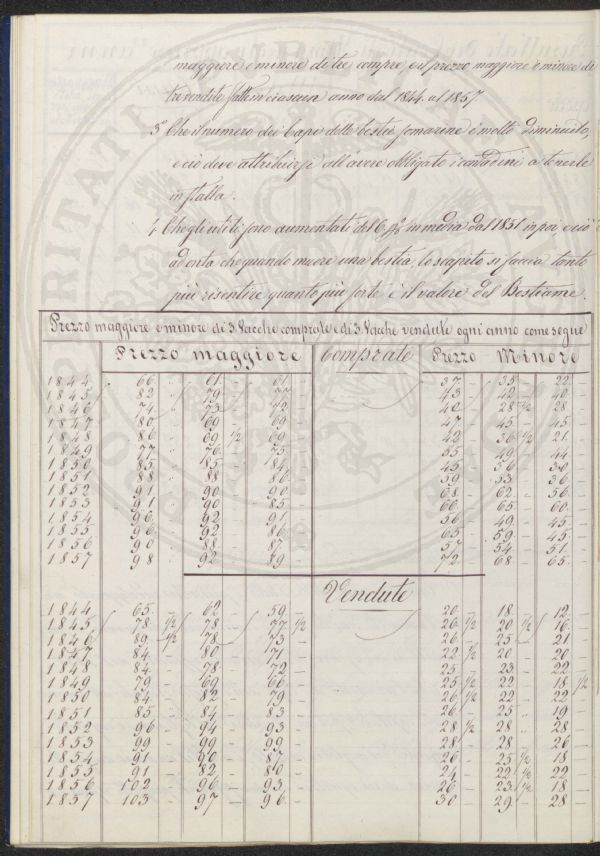 maggiore e minore di tre compre e il prezzo maggiore e minore di
tre vendite fatte in ciascun anno dal 1844 al 1857.
3° Che il numero dei Capi delle bestie somarine è molto diminuito,
e ciò deve attribuirsi all'avere obbligato i contadini a tenerle
in stalla.
4 Che gli utili sono aumentati del 6 p% in media dal 1851 in poi, e ciò
ad onta che quando muore una bestia, lo scapito si faccia tanto
più risentire quanto più forte è il valore del Bestiame.
Prezzo maggiore e minore di 3. Vacche comprate e di 3. Vache vendute ogni anno come segue
Prezzo maggiore Comprate Prezzo Minore
1844 66 " 61 - 61 - 37 - 35 - 22
1845 82 " 79 - 77 - 43 - 42 - 40 -
1846 74 " 73 - 72 - 42 - 28 1/2 28 -
1847 80 " 69 - 69 - 47 - 45 - 45 -
1848 86 " 69 1/2 69 - 42 - 36 1/2 21 -
1849 77 " 76 - 75 - 55 - 49 - 44 -
1850 85 - 185 - 184 - 45 - 36 - 30 -
1851 88 - 88 - 86 - 59 - 53 - 36 -
1852 91 - 90 - 90 - 68 - 62 - 56 -
1853 91 - 90 - 85 - 66 - 65 - 60 -
1854 96 - 92 - 91 - 56 - 49 - 45 -
1855 96 - 92 - 86 - 65 - 59 - 45 -
1856 90 - 88 - 87 - 57 - 54 - 51 -
1857 98 - 92 - 79 - 72 - 68 - 65 -
Vendute
1844 65 - 62 - 59 - 20 - 18 - 12 -
1845 78 1/2 78 - 77 1/2 26 1/2 20 1/2 16 -
1846 89 1/2 78 - 73 - 26 - 25 - 21 -
1847 84 - 80 - 71 - 22 1/2 20 - 20 -
1848 84 - 78 - 72 - 25 - 23 - 22 -
1849 79 - 69 - 66 - 25 1/2 22 - 18 1/2
1850 84 - 82 - 79 - 26 1/2 22 - 22 -
1851 85 - 84 - 83 - 26 - 25 - 19 -
1852 96 - 94 - 93 - 28 1/2 28 - 28 -
1853 99 - 99 - 99 - 28 - 28 - 26 -
1854 91 - 90 - 87 - 26 - 25 1/2 18 -
1855 91 - 82 - 80 - 24 - 22 1/2 22 -
1856 102 - 96 - 93 - 26 - 23 1/2 18 -
1857 103 - 97 - 96 - 30 - 29 - 28 -